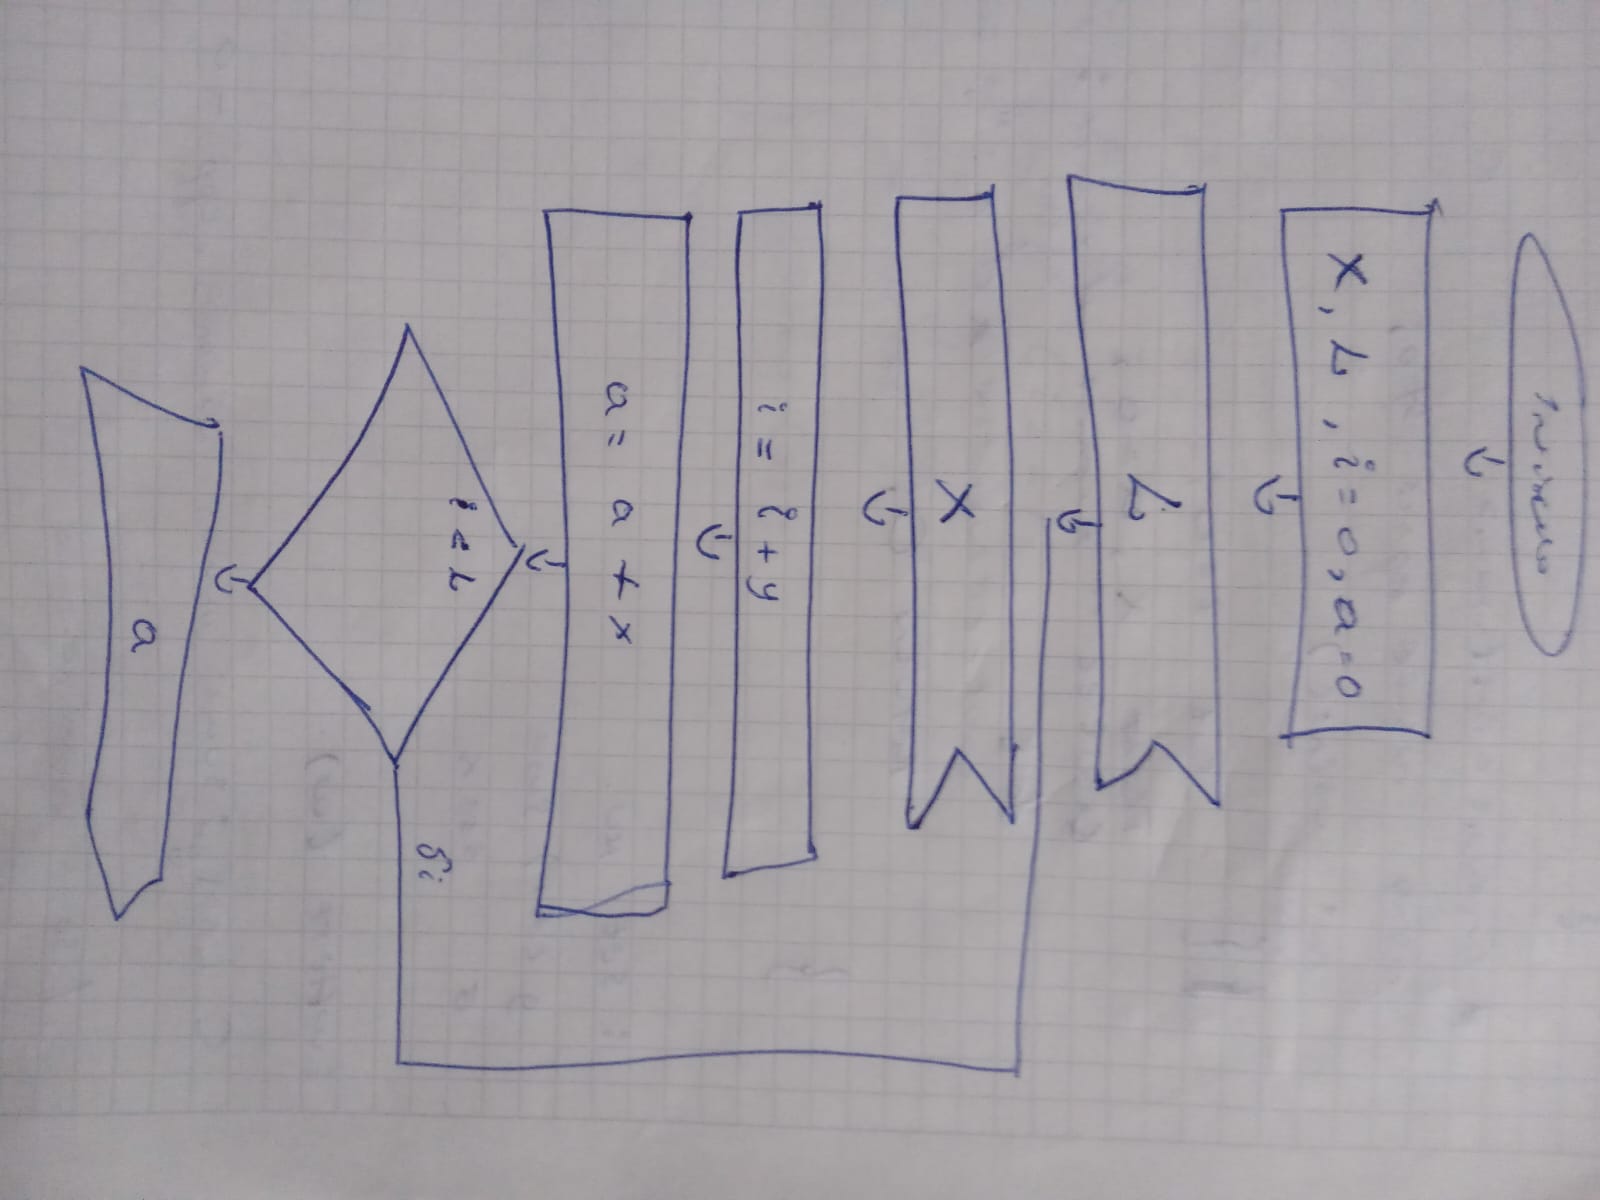 Inicio
x, L, i=0, a=0
L
x
i = i + y
a = a + x
i < L
Si
a